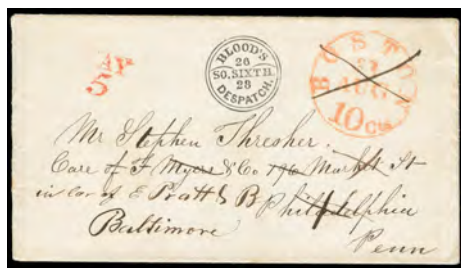 BLOOD'S
26
SO. SIXTH.
28
DESPATCH.
BOSTON
AUG
10 cts
Mr Stephen Thresher.
Care of F Myers & Co 176 Market St
in Car of E Pratt & B Philadelphia
Baltimore
Penn